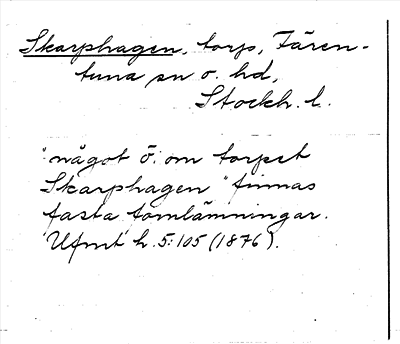 Skarphagen, torp, Fären-
tuna sn o. hd,
Stockh. l.
"något ö. om torpet
Skarphagen" finnas
fasta fornlämningar.
'Ufmt' h. 5:105 (1876).